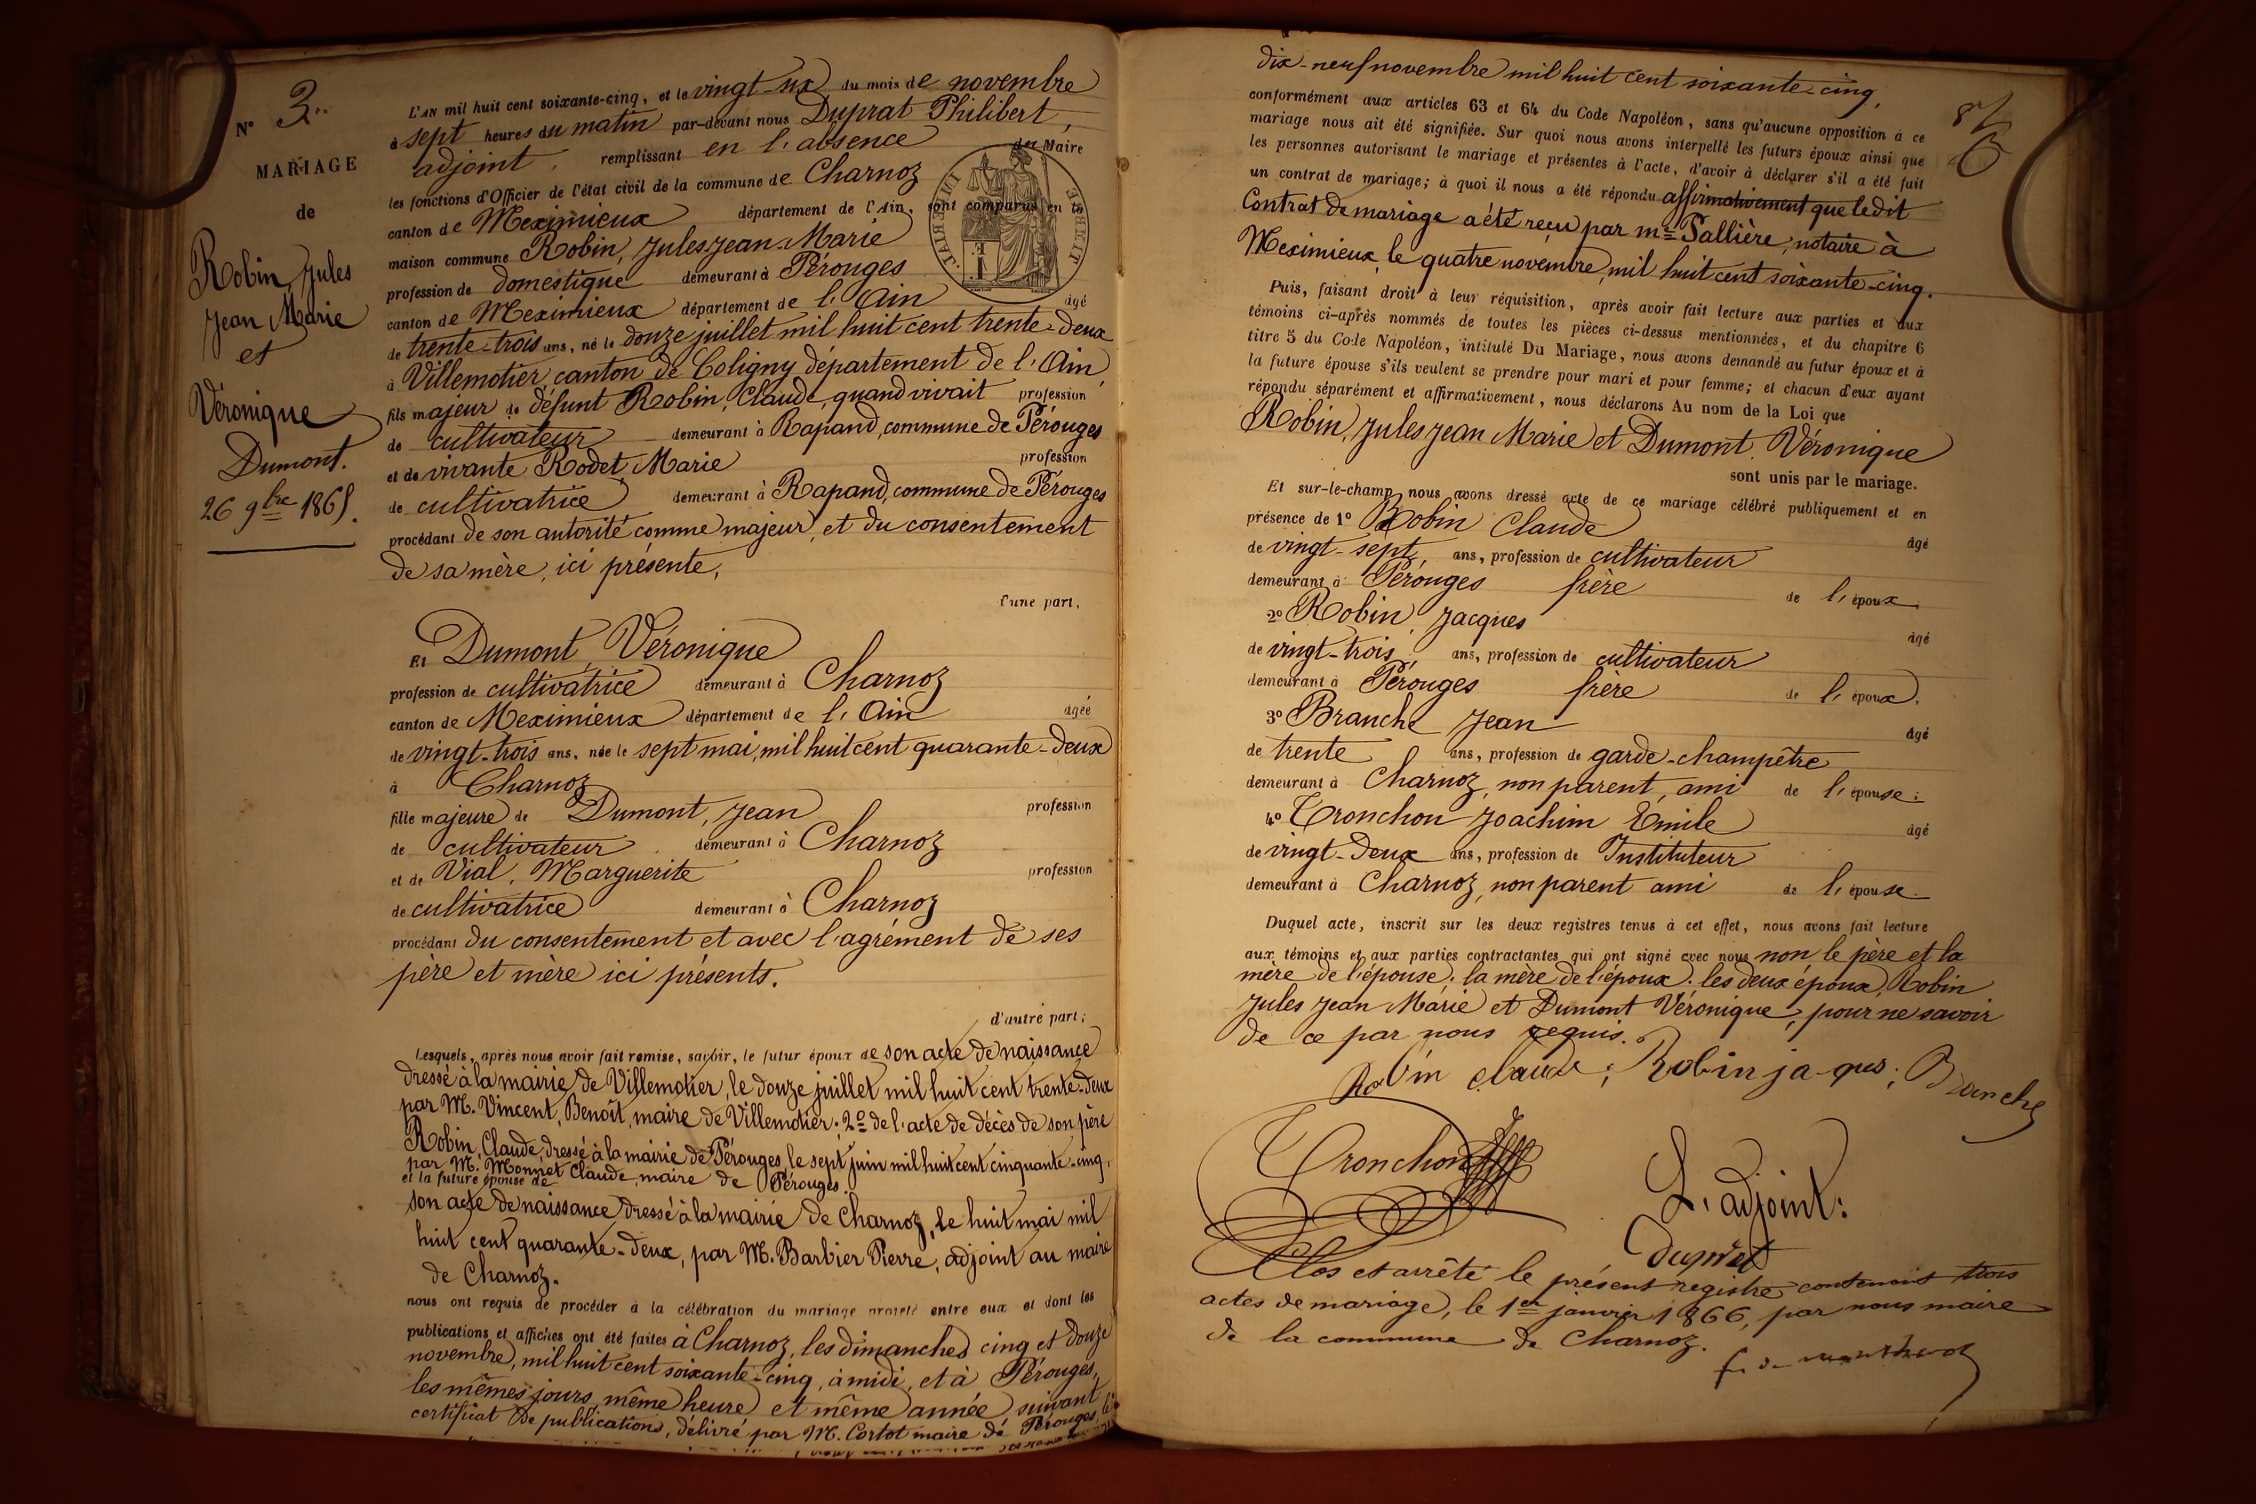 N° 3..
MARIAGE
de
Robin, Jules
Jean Marie
et
Véronique
Dumont.
26 9bre 1865.
L'AN mil huit cent soixante-cinq, et le vingt-six du mois de novembre
à sept heures du matin par-devant nous Duprat Philibert,
adjoint remplissant en l'absence du Maire
les fonctions d'Officier de l'état civil de la commune de Charnoz
canton de Meximieux département de l'Ain, sont comparus en la
maison commune Robin, Jules Jean-Marie
profession de domestique demeurant à Pérouges
canton de Meximieux département de l'Ain âgé
de trente-trois ans, né le douze juillet mil huit cent trente-deux
à Villemotier, canton de Coligny département de l'Ain,
fils majeur de défunt Robin, Claude, quand vivait profession
de cultivateur demeurant à Rapand, commune de Pérouges
et de vivante Rodet, Marie profession
de cultivatrice demeurant à Rapand, commune de Pérouges
procédant de son autorité comme majeur, et du consentement
de sa mère, ici présente,
d'une part,
Et Dumont, Véronique
profession de cultivatrice demeurant à Charnoz
canton de Meximieux département de l'Ain âgée
de vingt-trois ans, née le sept mai, mil huit cent quarante-deux
à Charnoz
fille majeure de Dumont, Jean profession
de cultivateur demeurant à Charnoz
et de Vial, Marguerite profession
de cultivatrice demeurant à Charnoz
procédant du consentement et avec l'agrément de ses
père et mère ici présents.
d'autre part;
Lesquels, après nous avoir fait remise, savoir, le futur époux de son acte de naissance
dressé à la mairie de Villemotier, le douze juillet mil huit cent trente-deux
par M. Vincent, Benoît, maire de Villemotier; 2° de l'acte de décès de son père
Robin, Claude, dressé à la mairie de Pérouges, le sept juin mil huit cent cinquante-cinq,
par M. Monnet Claude, maire de Pérouges.
et la future épouse de
son acte de naissance dressé à la mairie de Charnoz, le huit mai mil
huit cent quarante-deux, par M. Barbier Pierre, adjoint au maire
de Charnoz.
nous ont requis de procéder à la célébration du mariage projeté entre eux et dont les
publications et affiches ont été faites à Charnoz, les dimanches cinq et douze
novembre, mil huit cent soixante-cinq, à midi, et à Pérouges,
les mêmes jours, même heure et même année suivant
certificat de publications, délivré par M. Cortot maire de Pérouges, le
dix-neuf novembre mil huit cent soixante-cinq,
conformément aux articles 63 et 64 du Code Napoléon, sans qu'aucune opposition à ce
mariage nous ait été signifiée. Sur quoi nous avons interpellé les futurs époux ainsi que
les personnes autorisant le mariage et présentes à l'acte, d'avoir à déclarer s'il a été fait
un contrat de mariage; à quoi il nous a été répondu affirmativement que le dit
Contrat de mariage a été reçu par me Sallière, notaire à
Meximieux, le quatre novembre, mil huit cent soixante-cinq.
Puis, faisant droit à leur réquisition, après avoir fait lecture aux parties et aux
témoins ci-après nommés de toutes les pièces ci-dessus mentionnées, et du chapitre 6
titre 5 du Code Napoléon, intitulé Du Mariage, nous avons demandé au futur époux et à
la future épouse s'ils veulent se prendre pour mari et pour femme; et chacun d'eux ayant
répondu séparément et affirmativement, nous déclarons Au nom de la Loi que
Robin, Jules Jean Marie et Dumont, Véronique
sont unis par le mariage.
Et sur-le-champ nous avons dressé acte de ce mariage célébré publiquement et en
présence de 1° Robin Claude âgé
de vingt-sept ans, profession de cultivateur
demeurant à Pérouges frère de l'époux.
2° Robin Jacques âgé
de vingt-trois ans, profession de cultivateur
demeurant à Pérouges frère de l'époux.
3° Branche Jean âgé
de trente ans, profession de garde-champêtre
demeurant à Charnoz, non parent, ami de l'épouse;
4° Tronchon Joachim Emile âgé
de vingt-deux ans, profession de Instituteur
demeurant à Charnoz, non parent ami de l'épouse.
Duquel acte, inscrit sur les deux registres tenus à cet effet, nous avons fait lecture
aux témoins et aux parties contractantes qui ont signé avec nous non le père et la
mère de l'épouse; la mère de l'époux; les deux époux, Robin
Jules Jean Marie et Dumont Véronique, pour ne savoir
de ce par nous requis.
Robin claude; Robin ja-ques; Branche
Tronchon
L'adjoint:
Clos et arrêté le présent registre contenant trois
actes de mariage, le 1er janvier 1866, par nous maire
de la commune de Charnoz.